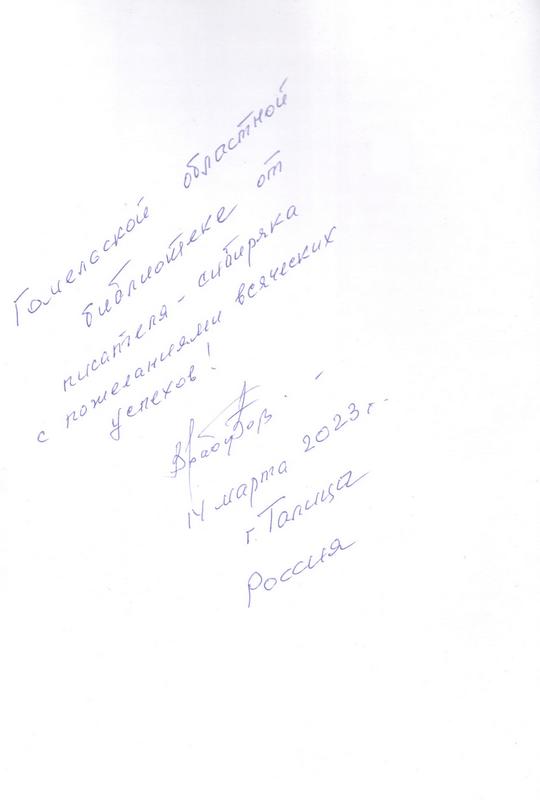 Гомельской областной
библиотеке от
писателя - сибиряка
с пожеланиями всяческих
успехов!
14 марта 2023 г.
г. Талица
Россия